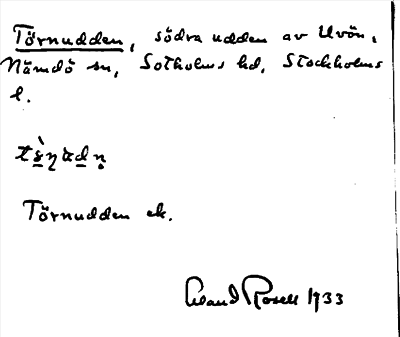 Törnudden, södra udden av Uvön,
Nämdö sn, Sotholms hd, Stockholms
l.
Törnudden ek.
Rosell 1933